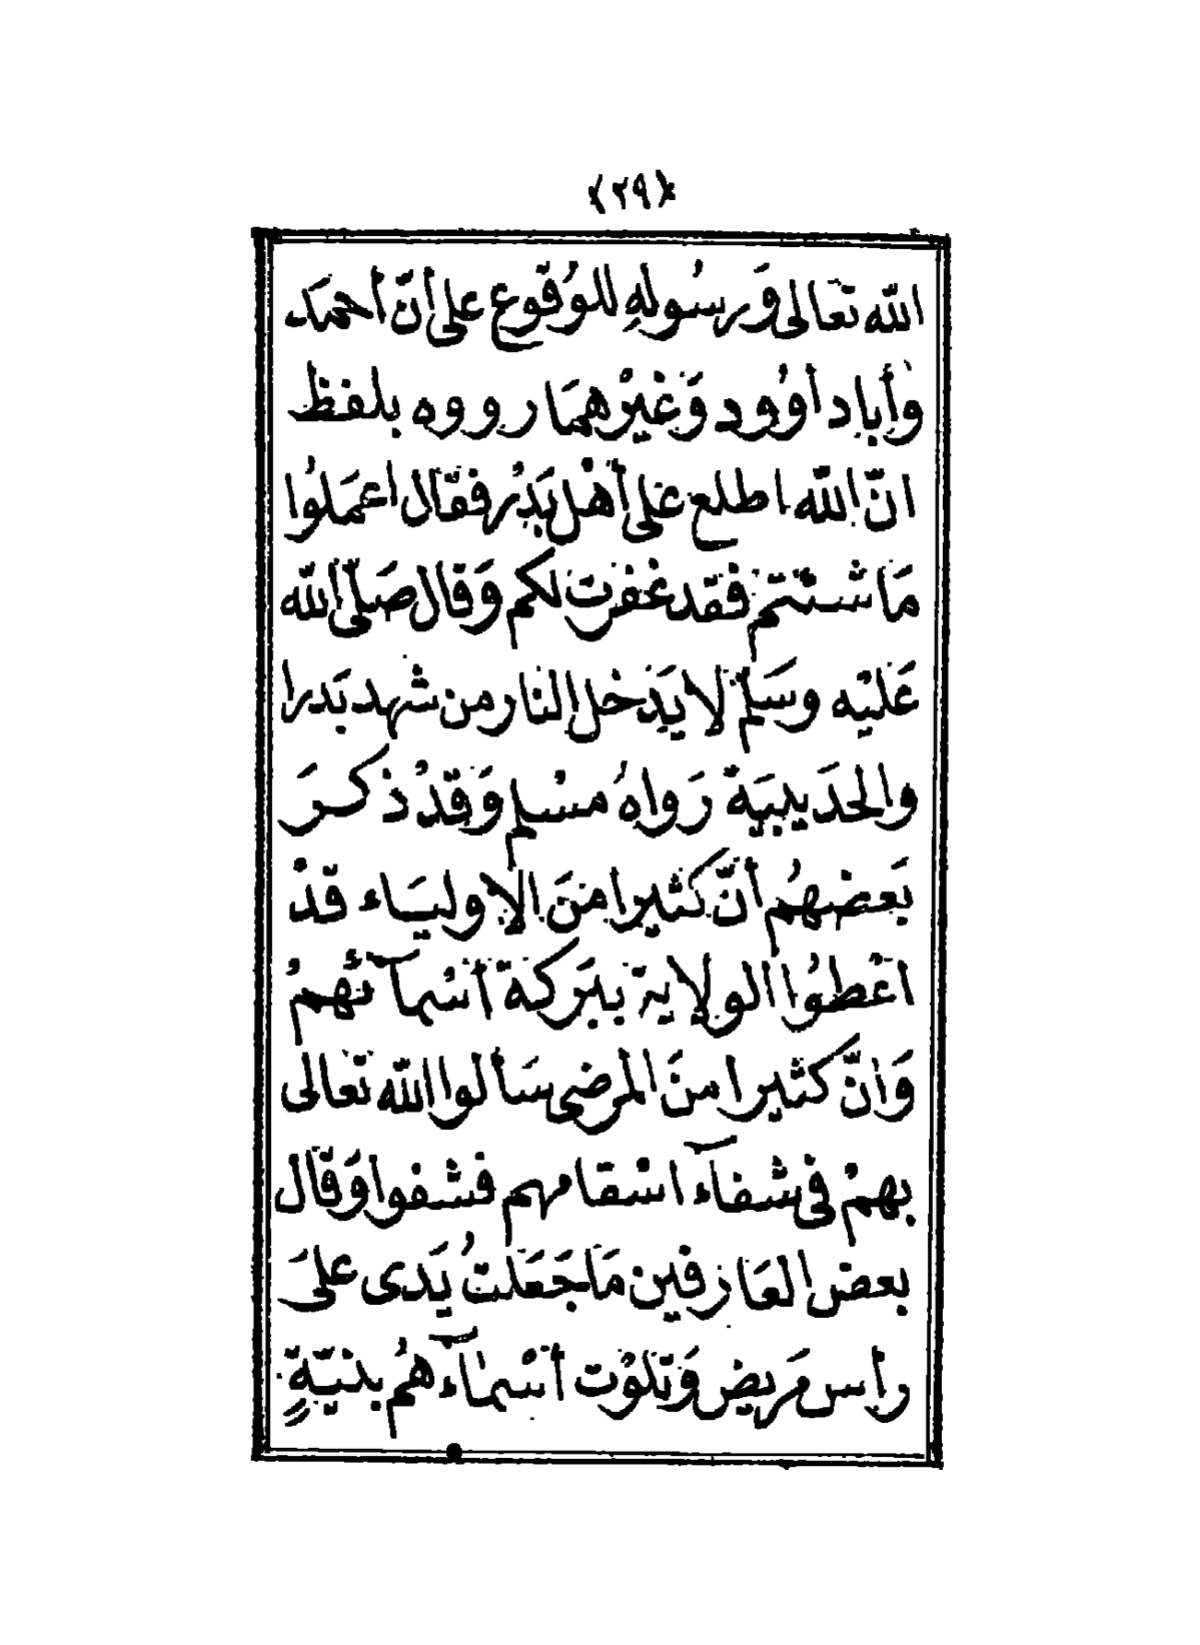 ﴿٢٩﴾
الله تعالى وَرسُولهِ للوُقوعِ على أنّ أحمَد
وأباد أوُود وَغَيْرهمَا رووه بلفظ
انّ الله اطلع عَلى أهْل بَدْر فقَال اعمَلوُا
مَا شئتم فقد غفرت لكم وَقال صَلّى الله
عَليْه وسَلّم لا يَدخل النار من شهد بَدرا
والحدَيبيَة رَواهُ مسْلم وَقدْ ذكرَ
بَعضهُم أنّ كثيرا منَ الاوليَاء قَدْ
اعْطوُا الولاية ببَركة أسْمآئهمْ
وَانّ كثيرا منَ المرضى سَألوا الله تعَالى
بهمْ فى شفآء اسْقامهم فشفوا وَقَالَ
بعض العَارفين مَا جَعَلتُ يَدى عَلىَ
رأس مَريض وَتلَوْت أسْمآءهُم بنيّةٍ